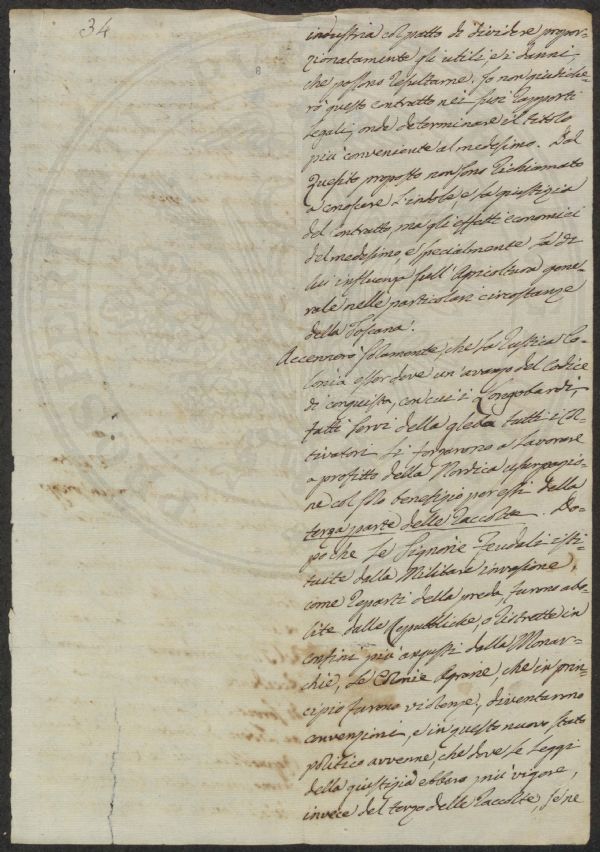 34
industria col patto di dividere propor-
zionatamente gli utili, e i danni
che possono resultarne. Io non giudiche-
rò questo contratto nei suoi rapporti
legali, onde determinare il titolo
più conveniente al medesimo. Dal
Quesito proposto non sono richiamato
a conoscere l'indole, e la giustizia
del contratto, ma gli effetti economici
del medesimo, e specialmente la di
lui influenza sull'Agricoltura gene-
rale nelle particolari circostanze
della Toscana.
Accennerò solamente, che la rustica Co-
lonia esser deve un'avanzo del Codice
di conquista, con cui i Longobardi,
fatti servi della gleba tutti i Col-
tivatori li forzarono a lavorare
a profitto della Nordica usurpazio-
ne col solo benefizio per essi della
terza parte delle raccolte. Do-
po che le Signorie Feudali isti-
tuite dalla Militare invasione,
come reparti della preda, furono abo-
lite dalle Repubbliche, o ristrette in
confini più angusti dalla Monar-
chie, le Colonie Agrarie, che in prin-
cipio furono violenze, diventarono
convenzioni, e in questo nuovo stato
politico avvenne, che dove le Leggi
della giustizia ebbero più vigore,
invece del terzo delle raccolte, se ne